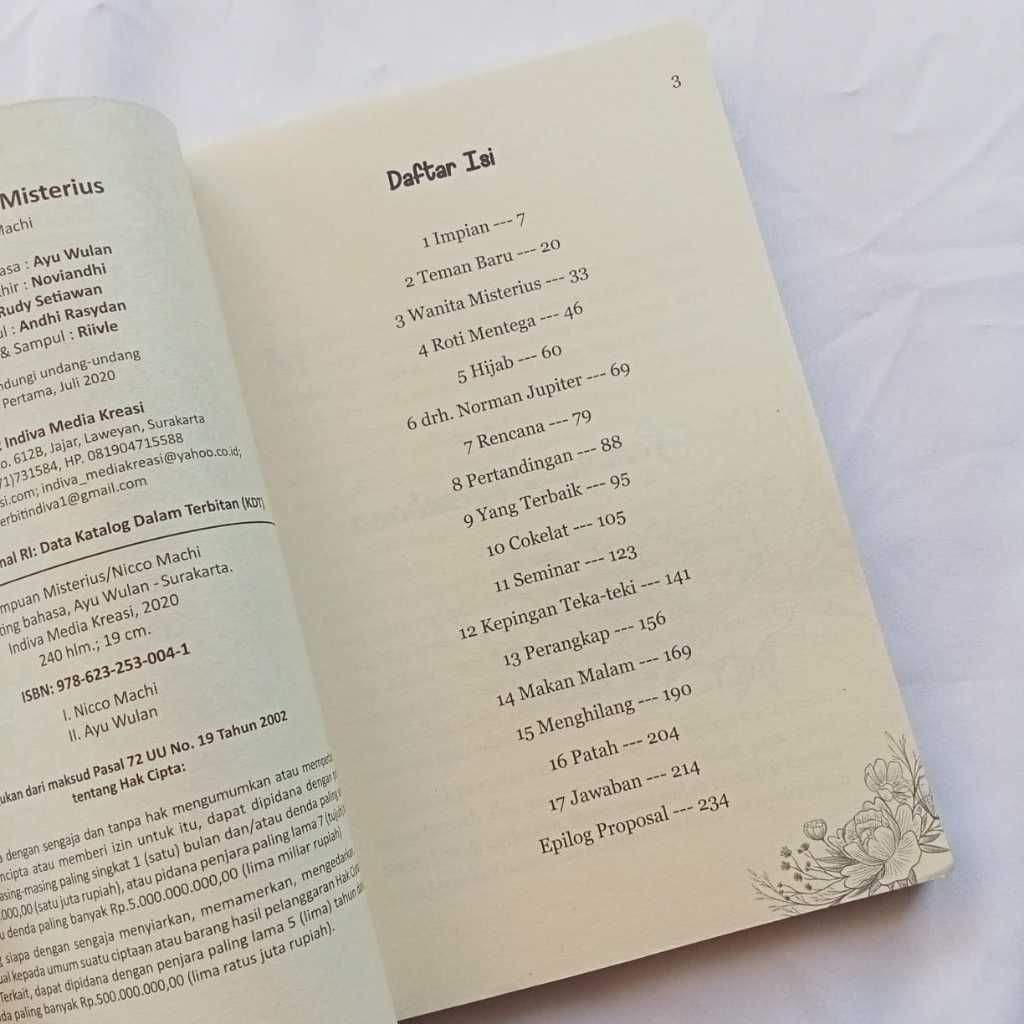 Misterius
Machi
asa : Ayu Wulan
hir : Noviandhi
Rudy Setiawan
ul : Andhi Rasydan
& Sampul : Riivle
ndungi undang-undang
Pertama, Juli 2020
Indiva Media Kreasi
o. 612B, Jajar, Laweyan, Surakarta
71)731584, HP. 081904715588
si.com; indiva_mediakreasi@yahoo.co.id;
erbitindiva1@gmail.com
nal RI: Data Katalog Dalam Terbitan (KDT)
mpuan Misterius/Nicco Machi
ting bahasa, Ayu Wulan - Surakarta.
Indiva Media Kreasi, 2020
240 hlm.; 19 cm.
ISBN: 978-623-253-004-1
I. Nicco Machi
II. Ayu Wulan
ukan dari maksud Pasal 72 UU No. 19 Tahun 2002
tentang Hak Cipta:
dengan sengaja dan tanpa hak mengumumkan atau
cipta atau memberi izin untuk itu, dapat dipidana dengan
asing-masing paling singkat 1 (satu) bulan dan/atau denda paling
000,00 (satu juta rupiah), atau pidana penjara paling lama 7
denda paling banyak Rp.5.000.000.000,00 (lima miliar rupiah)
siapa dengan sengaja menyiarkan, memamerkan, mengedarkan,
ual kepada umum suatu ciptaan atau barang hasil pelanggaran Hak Cipta
Terkait, dapat dipidana dengan penjara paling lama 5 (lima) tahun
da paling banyak Rp.500.000.000,00 (lima ratus juta rupiah).
3
Daftar Isi
1 Impian --- 7
2 Teman Baru --- 20
3 Wanita Misterius --- 33
4 Roti Mentega --- 46
5 Hijab --- 60
6 drh. Norman Jupiter --- 69
7 Rencana --- 79
8 Pertandingan --- 88
9 Yang Terbaik --- 95
10 Cokelat --- 105
11 Seminar --- 123
12 Kepingan Teka-teki --- 141
13 Perangkap --- 156
14 Makan Malam --- 169
15 Menghilang --- 190
16 Patah --- 204
17 Jawaban --- 214
Epilog Proposal --- 234